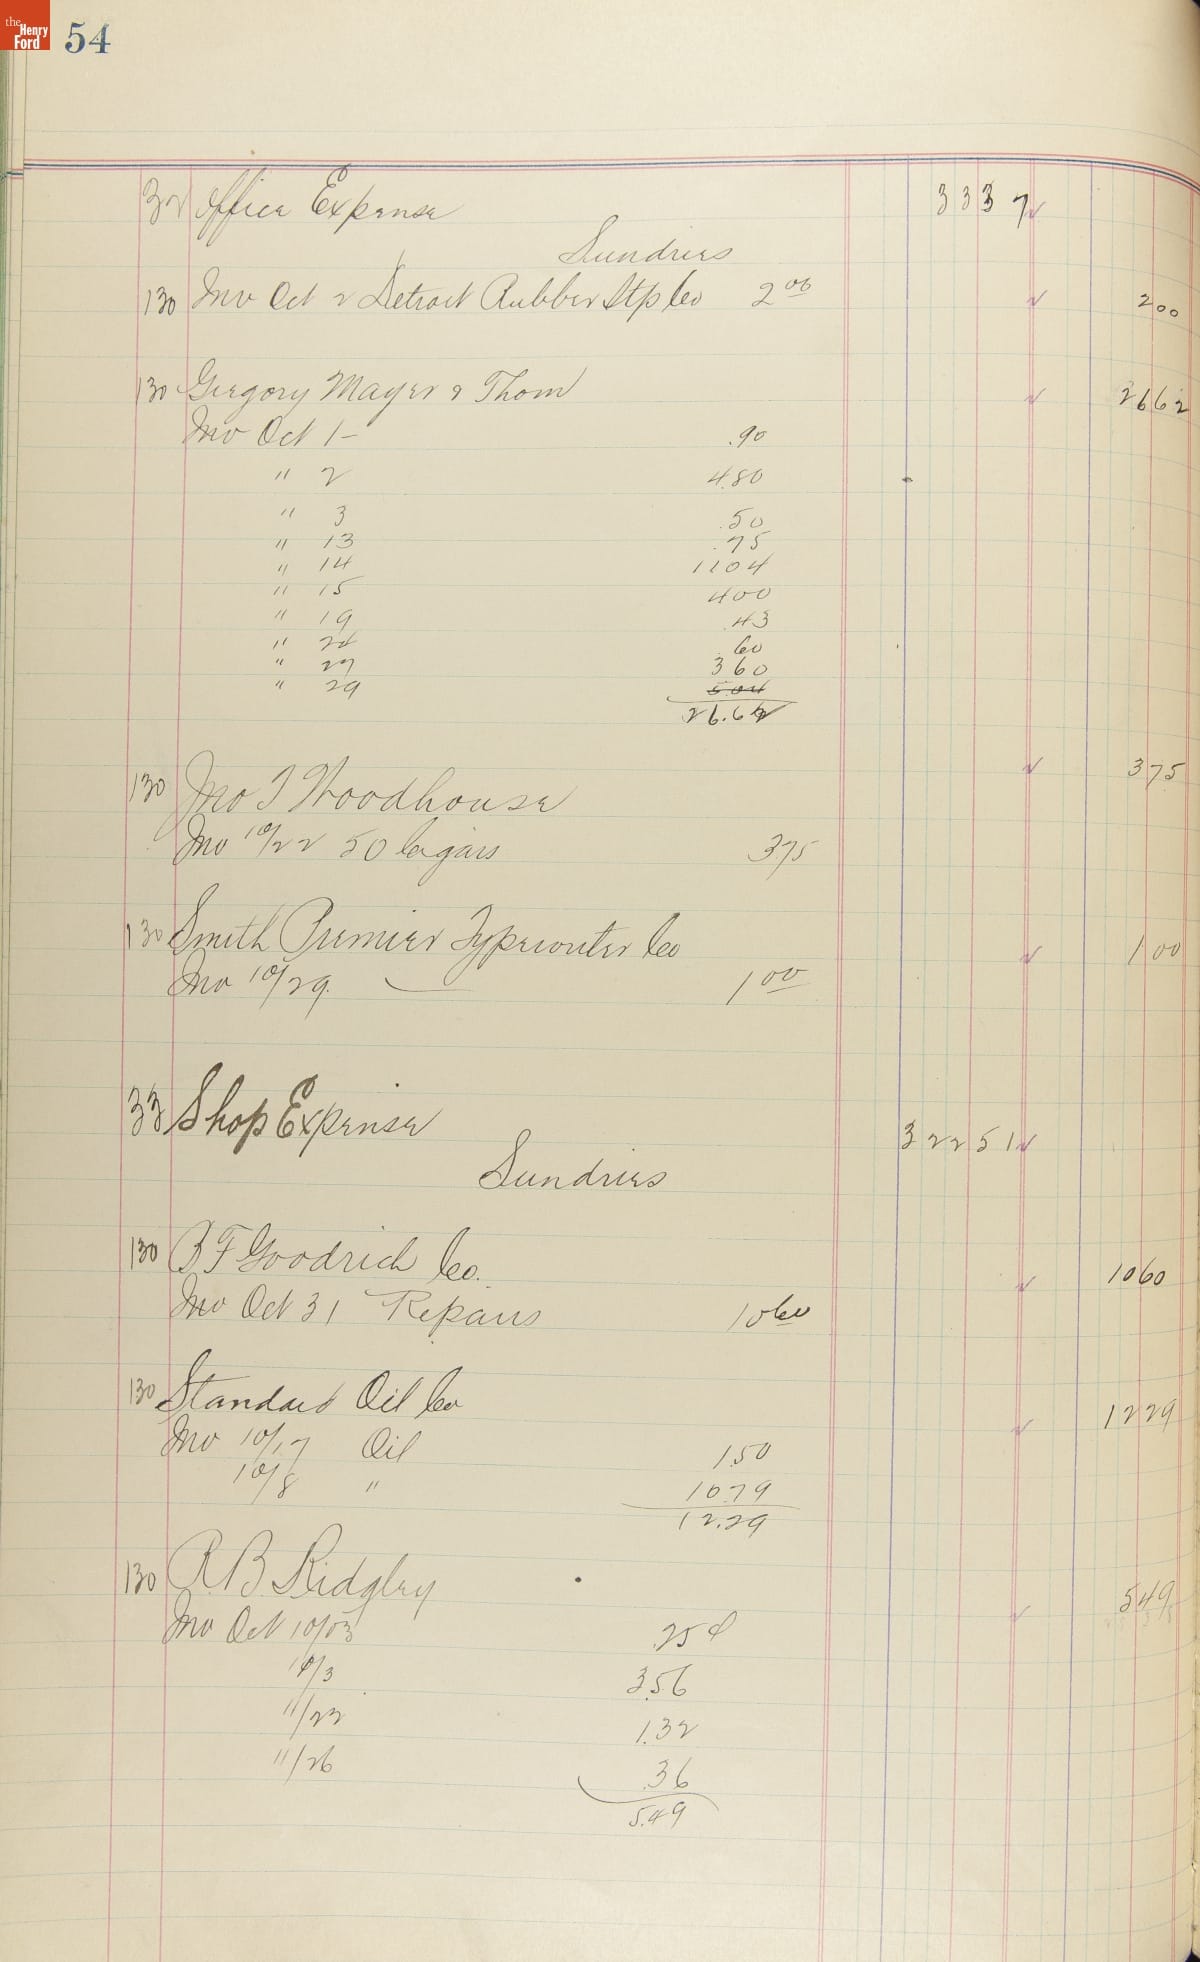 the Henry Ford
54
32 Office Expense 33 37
Sundries
130 Inv Oct 2 Detroit Rubber Stp Co 2 00 2 00
130 Gregory Mayer & Thom 26 62
Inv Oct 1 - .90
" 2 4.80
" 3 .50
" 13 .75
" 14 11 04
" 15 4 00
" 19 .43
" 24 .60
" 27 3 60
" 29 5.04
26.62
130 Jno T Woodhouse 3 75
Inv 10/22 50 Cigars 3 75
130 Smith Premier Typewriter Co 1 00
Inv 10/29 1 00
33 Shop Expense 322 51
Sundries
130 B F Goodrich Co. 10 60
Inv Oct 31 Repairs 10 60
130 Standard Oil Co 12 29
Inv 10/17 Oil 1.50
10/8 " 10.79
12.29
130 R.B. Ridgley 5 49
Inv Oct 10/03 .25
10/3 3.56
11/22 1.32
11/26 .36
5.49